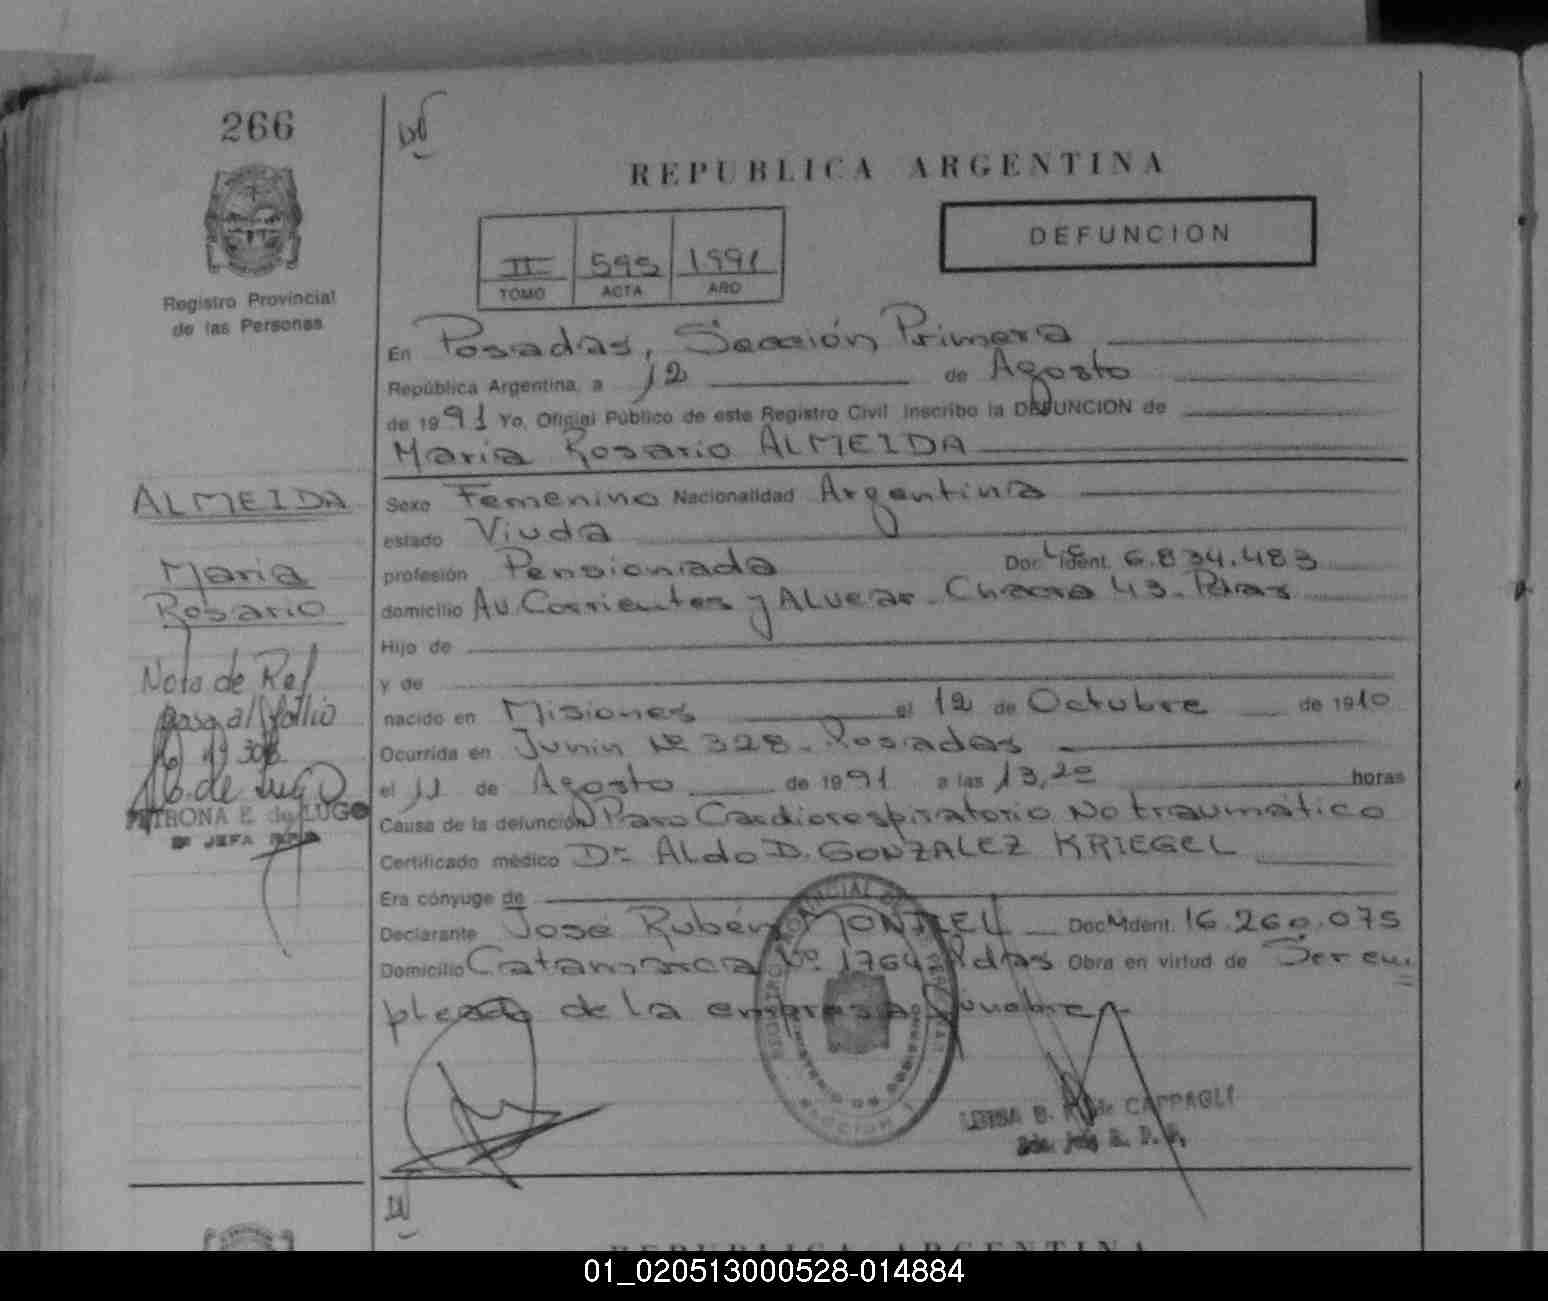 266
REPUBLICA ARGENTINA
DEFUNCION
II 595 1991
TOMO ACTA AÑO
Registro Provincial
de las Personas
En Posadas, Sección Primera
República Argentina, a 12 de Agosto
de 1991 Yo, Oficial Público de este Registro Civil inscribo la DEFUNCION de
Maria Rosario ALMEIDA
ALMEIDA
Maria
Rosario
Nota de Ref
pasa al folio
Nº 308
PETRONA E. de LUGO
JEFA
Sexo Femenino Nacionalidad Argentina
estado Viuda
profesión Pensionada Doc. L.C. Ident. 6.834.483
domicilio Av. Corrientes y Alvear - Chacra 43 - Pdas
Hijo de
y de
nacido en Misiones el 12 de Octubre de 1910
Ocurrida en Junin Nº 328 - Posadas
el 11 de Agosto de 1991 a las 13,20 horas
Causa de la defunción Paro Cardiorespiratorio No traumático
Certificado médico Dr Aldo D. GONZALEZ KRIEGEL
Era cónyuge de
Declarante José Rubén MONTIEL Doc. Ident. 16.260.075
Domicilio Catamarca Nº 1764 Pdas Obra en virtud de Ser em=
pleado de la empresa fúnebre
REGISTRO PROVINCIAL DE LAS PERSONAS
MINISTERIO DE GOBIERNO
B. de CAPPAGLI
REPUBLICA ARGENTINA
01_020513000528-014884